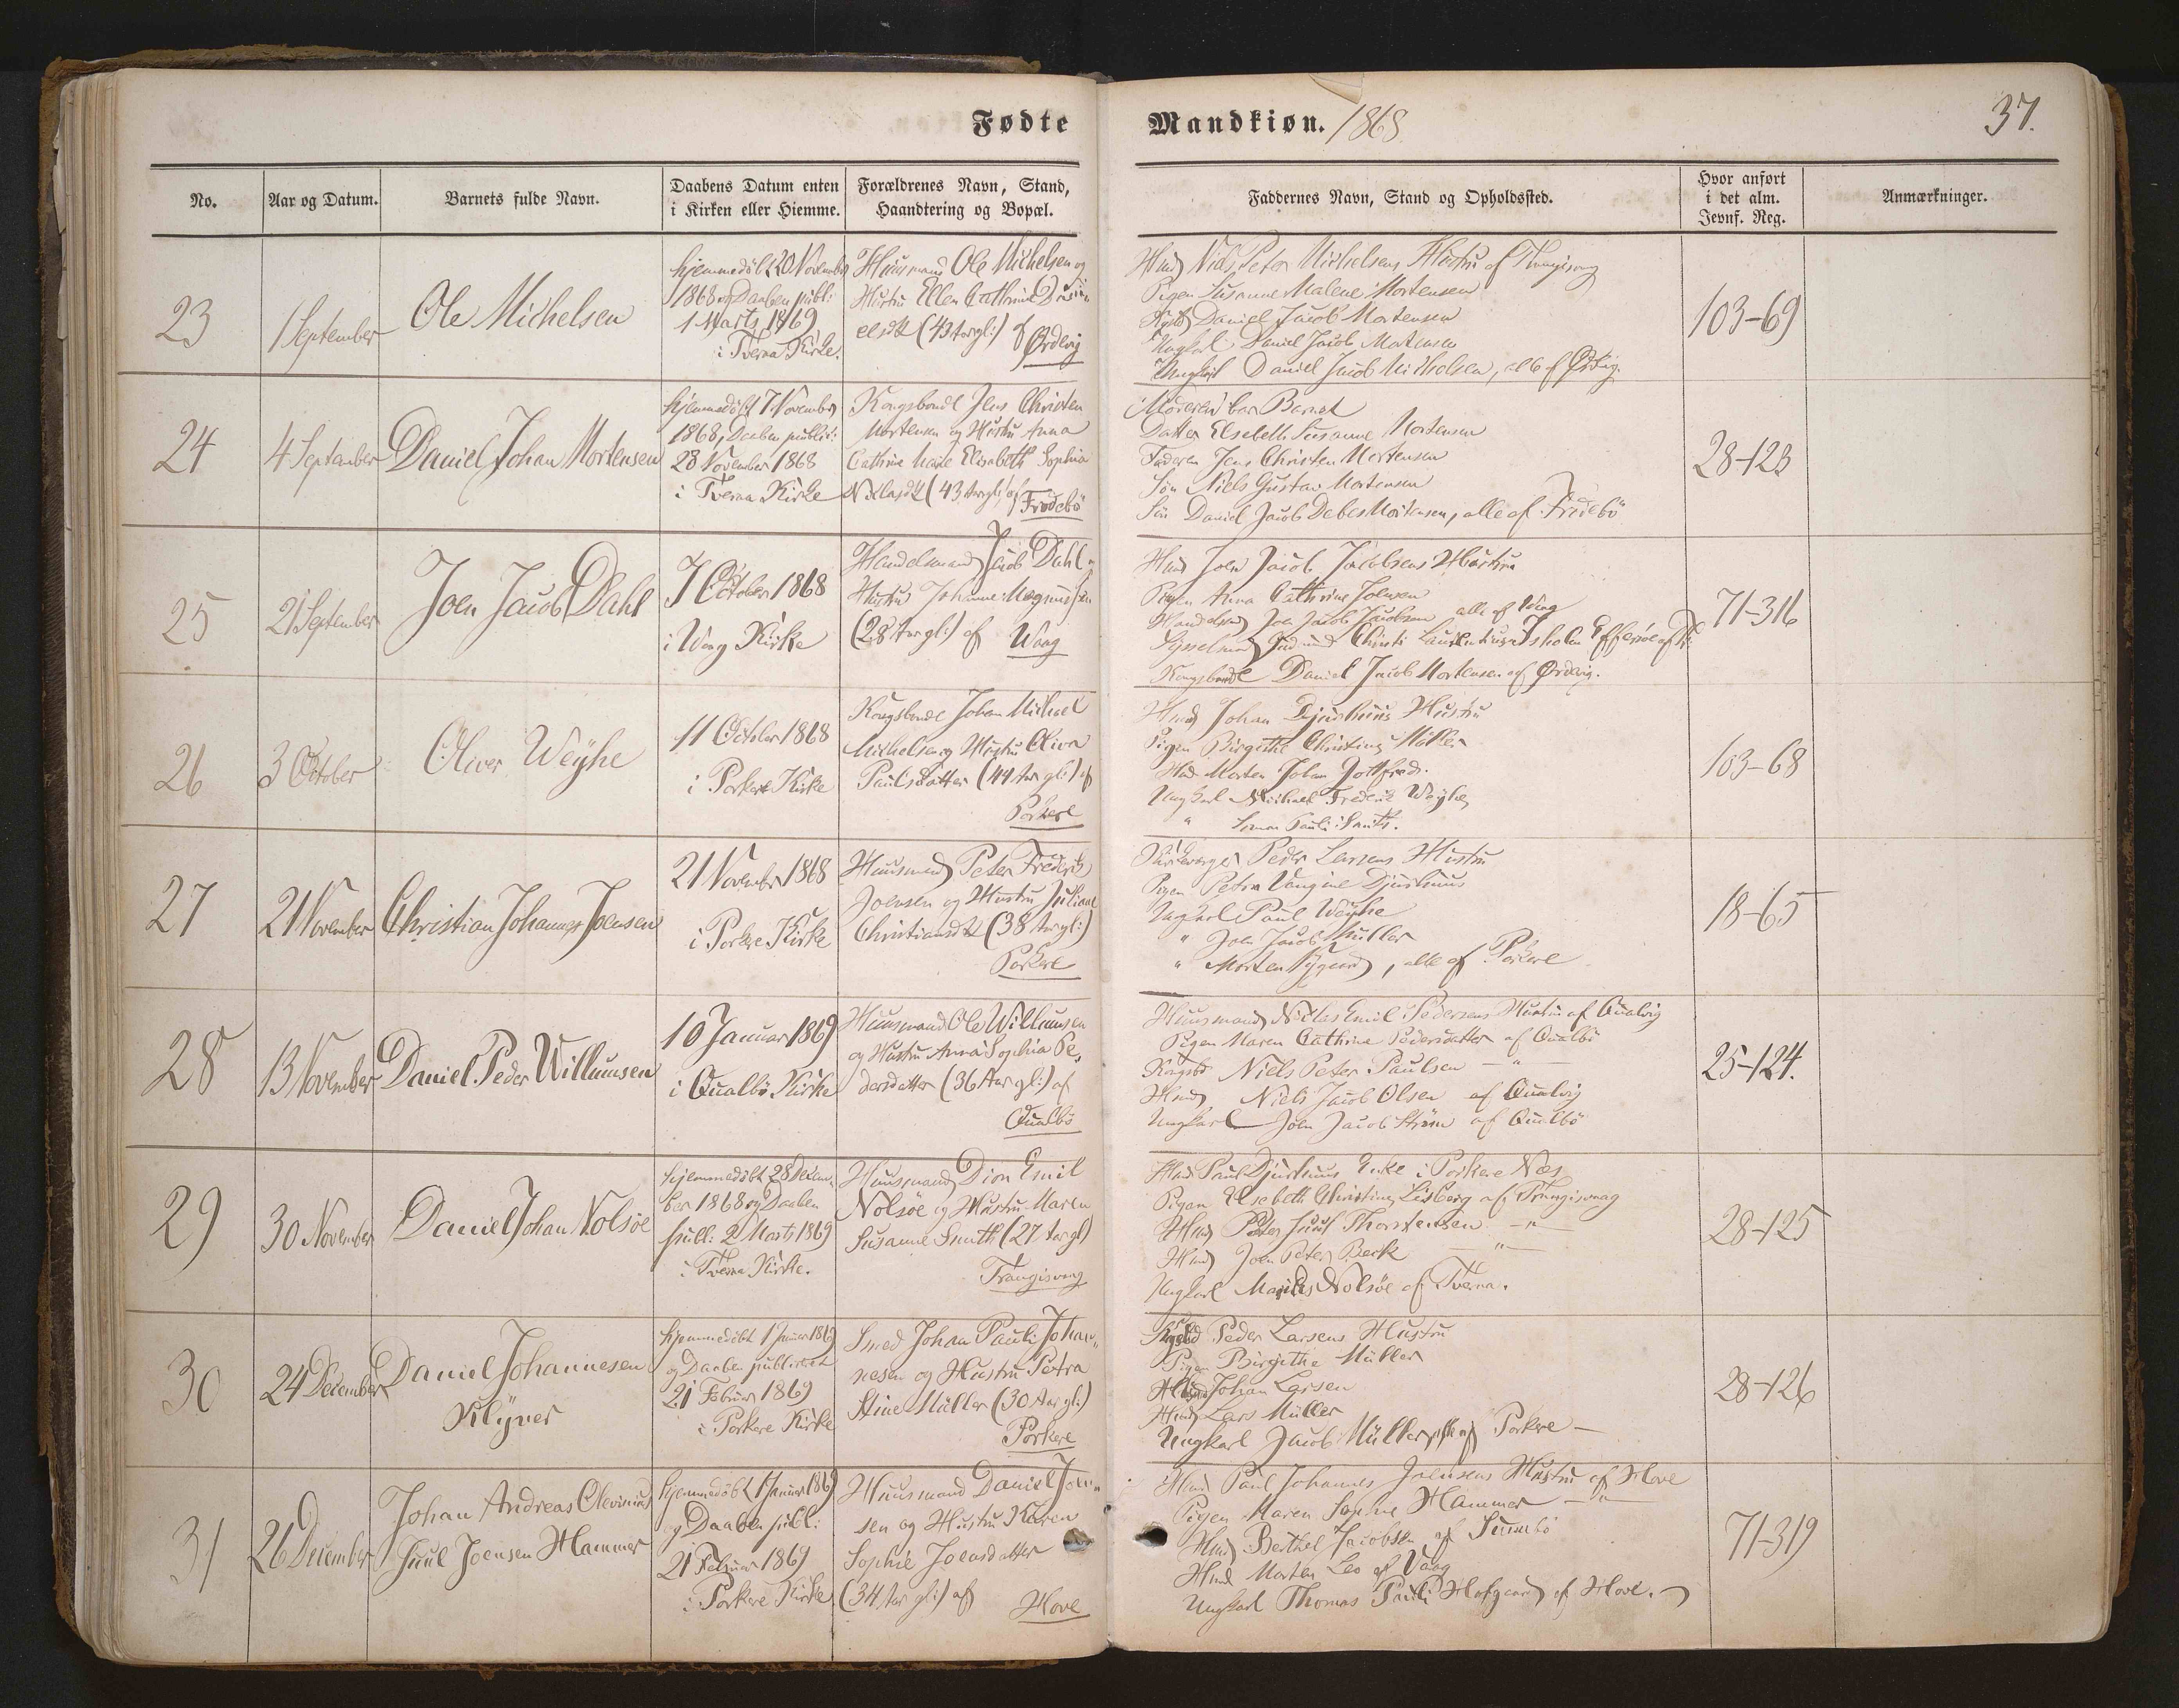 Fødte
Mandkiøn. 1868.
37.
No.
Aar og Datum.
Barnets fulde Navn.
Daabens Datum enten
i Kirken eller Hiemme.
Forældrenes Navn, Stand,
Haandtering og Bopæl.
Faddernes Navn, Stand og Opholdssted.
Hvor anført
i det alm.
Jevnf. Reg.
Anmærkninger.
23
1 September
Ole Michelsen
hjemmedöbt 20 November
1868 og Daaben publ:
1 Marts 1869
i Tveraa Kirke.
Huusmand Ole Michelsen og
Hustru Ellen Cathrine
(43 Aar gl:) af
Ördevig
Hmd Niels Peter Michelsens Hustru af
Pigen Susanne Malene Mortensen
Daniel Jacob Mortensen
Ungkarl Daniel Jacob Mortensen
Ungkarl Daniel Jacob Michelsen, alle af Ördvig.
103-69
24
4 September
Daniel Johan Mortensen
hjemmedöbt 7 November
1868, Daaben public:
28 November 1868
i Tveraa Kirke
Kongsbonde Jens Christen
Mortensen og Hustru Anna
Cathrine Marie Elisabeth Sophia
(43 Aar gl:) af
Frodebö
Moderen bar Barnet
Datter Elsebeth Susanne Mortensen
Faderen Jens Christen Mortensen
Sön Niels Gustav Mortensen
Sön Daniel Jacob Debes Mortensen, alle af Frodebö
28-123
25
21 September
Joen Jacob Dahl
7 October 1868
i Waag Kirke
Handelsmand Jacob Dahl og
Hustru Johanne Magnussen
(28 Aar gl:) af Waag
Hmd Joen Jacob Jacobsens Hustru
Pigen Anna Cathrine Joensen
Handelsmd Joen Jacob Jacobsen alle af Waag
Sysselmand Gudmund Christi Laurentius Isholm Effersöe af
Kongsbonde Daniel Jacob Mortensen af Ördevig.
71-316
26
3 October
Oliver Weÿhe
11 October 1868
i Porkere Kirke
Kongsbonde Johan Michael
Michelsen og Hustru Oliva
Paulsdatter (44 Aar gl:) af
Porkere
Hmd Johan Djurhuus Hustru
Pigen Birgithe Christine Müller
Hmd Morten Johan Gottfred.
Ungkarl Michael Frederik Weÿhe
" Simon Pauli Smith.
103-68
27
21 November
Christian Johannes Joensen
21 November 1868
i Porkere Kirke
Huusmand Peter Frederik
Joensen og Hustru Juliane
Christiansdtt (38 Aar gl:)
Porkere
Kirkeværger Peder Larsens Hustru
Pigen Petra Vangine Djurhuus
Ungkarl Paul Weÿhe
" Joen Jacob Müller
" Morten Nygaard, alle af Porkere
18-65
28
13 November
Daniel Peder Willumsen
10 Januar 1869
i Qualbö Kirke
Huusmand Ole Willumsen
og Hustru Anna Sophia Pe,
dersdatter (36 Aar gl:) af
Qualbö
Huusmand Niclas Emil Pedersens Hustru af Qualvig
Pigen Maren Cathrine Pedersdatter af Qualbö
Kngsb Niels Peter Paulsen — " —
Hmd Niels Jacob Olsen af Qualvig
Ungkarl Joen Jacob Ström af Qualbö
25-124.
29
30 November
Daniel Johan Nolsöe
hjemmedöbt 28 Decem-
ber 1868 og Daaben
publ: 2 Marts 1869
i Tveraa Kirke.
Huusmand Dion Emil
Nolsöe og Hustru Maren
Susanne Smith (27 Aar gl)
Trangisvaag
Hmd Paul Djurhuus Enke i Porkere Næs
Pigen Elsebeth Christine Lisberg af Trangisvaag
Hmd Peter Juul Thorsteinsen — " —
Hmd Joen Peter Beck — " —
Ungkarl Marius Nolsöe af Tveraa.
28-125
30
24 December
Daniel Johannesen
Klÿver
hjemmedöbt 1 Januar 1869
og Daaben publiceret
21 Februar 1869
i Porkere Kirke
Smed Johan Pauli Johan,,
nesen og Hustru Petra
Stine Müller (30 Aar gl:)
Porkere
Peder Larsens Hustru
Pigen Birgithe Müller
Johan Larsen
Hmd Lars Müller
Ungkarl Jacob Müller, alle af Porkere —
28-126
31
26 December
Johan Andreas Clevinius
Juul Joensen Hammer
hjemmedöbt 1 Januar 1869
og Daaben publ:
21 Februar 1869
i Porkere Kirke
Huusmand Daniel Joen,,
sen og Hustru Karen
Sophie Joensdatter
(34 Aar gl:) af
Hove
Hmd Paul Johannes Joensens Hustru af Hove
Pigen Maren Sophie Hammer — " —
Hmd Berthel Jacobsen af Sumbö
Hmd Morten Leo af Vaag
Ungkarl Thomas Pauli Hofgaard af Hove.
71-319